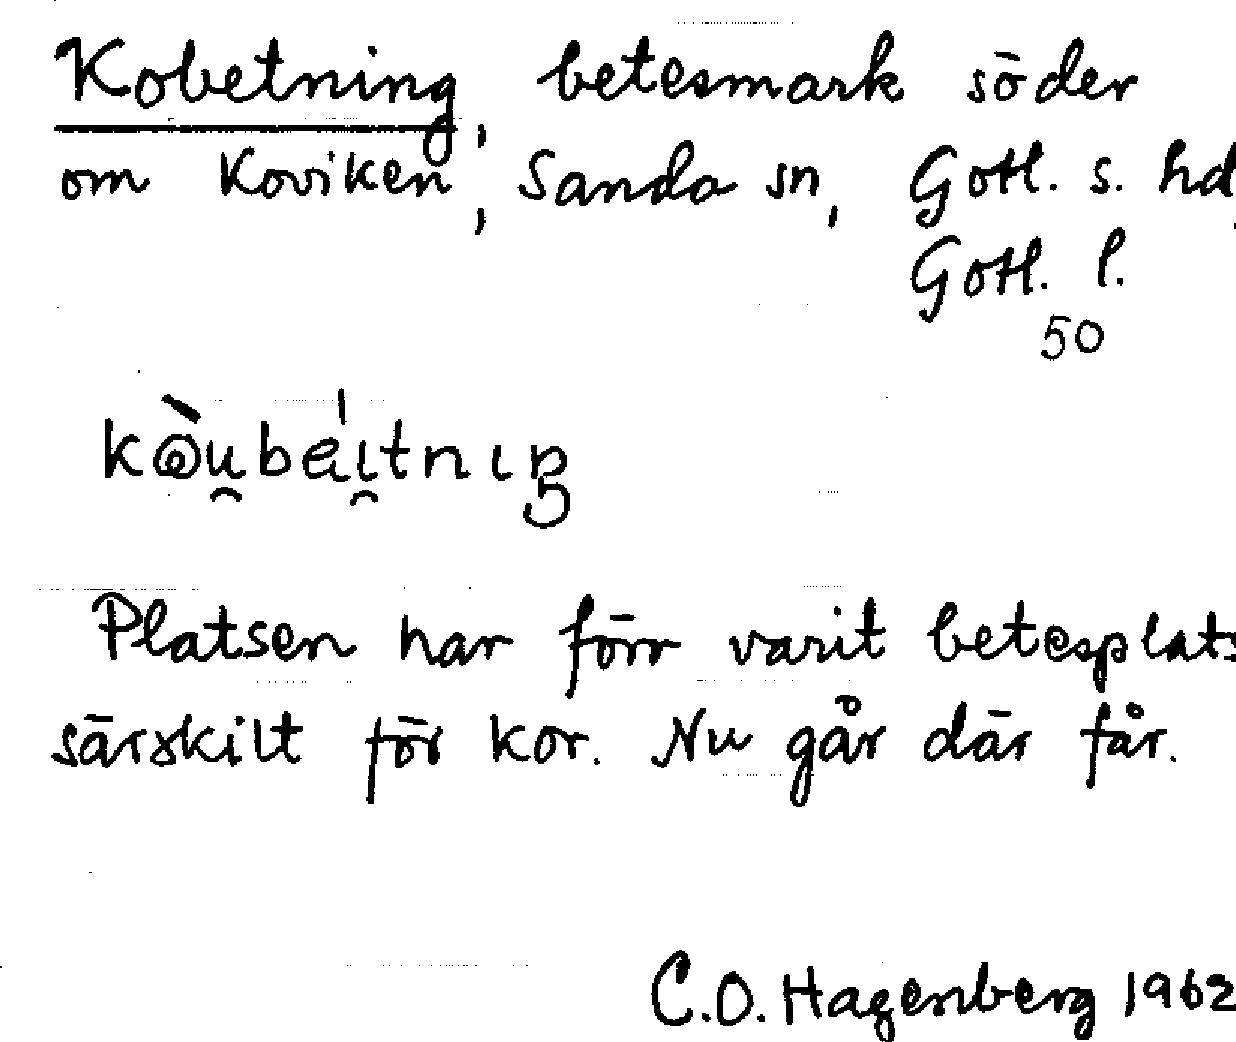 Kobetning, betesmark söder
om Koviken, Sanda sn, Gotl. s. hd
Gotl. l.
50
kòu̯bei̯tnıŋ
Platsen har förr varit betesplats
särskilt för kor. Nu går där får.
C.O. Hagenberg 1962